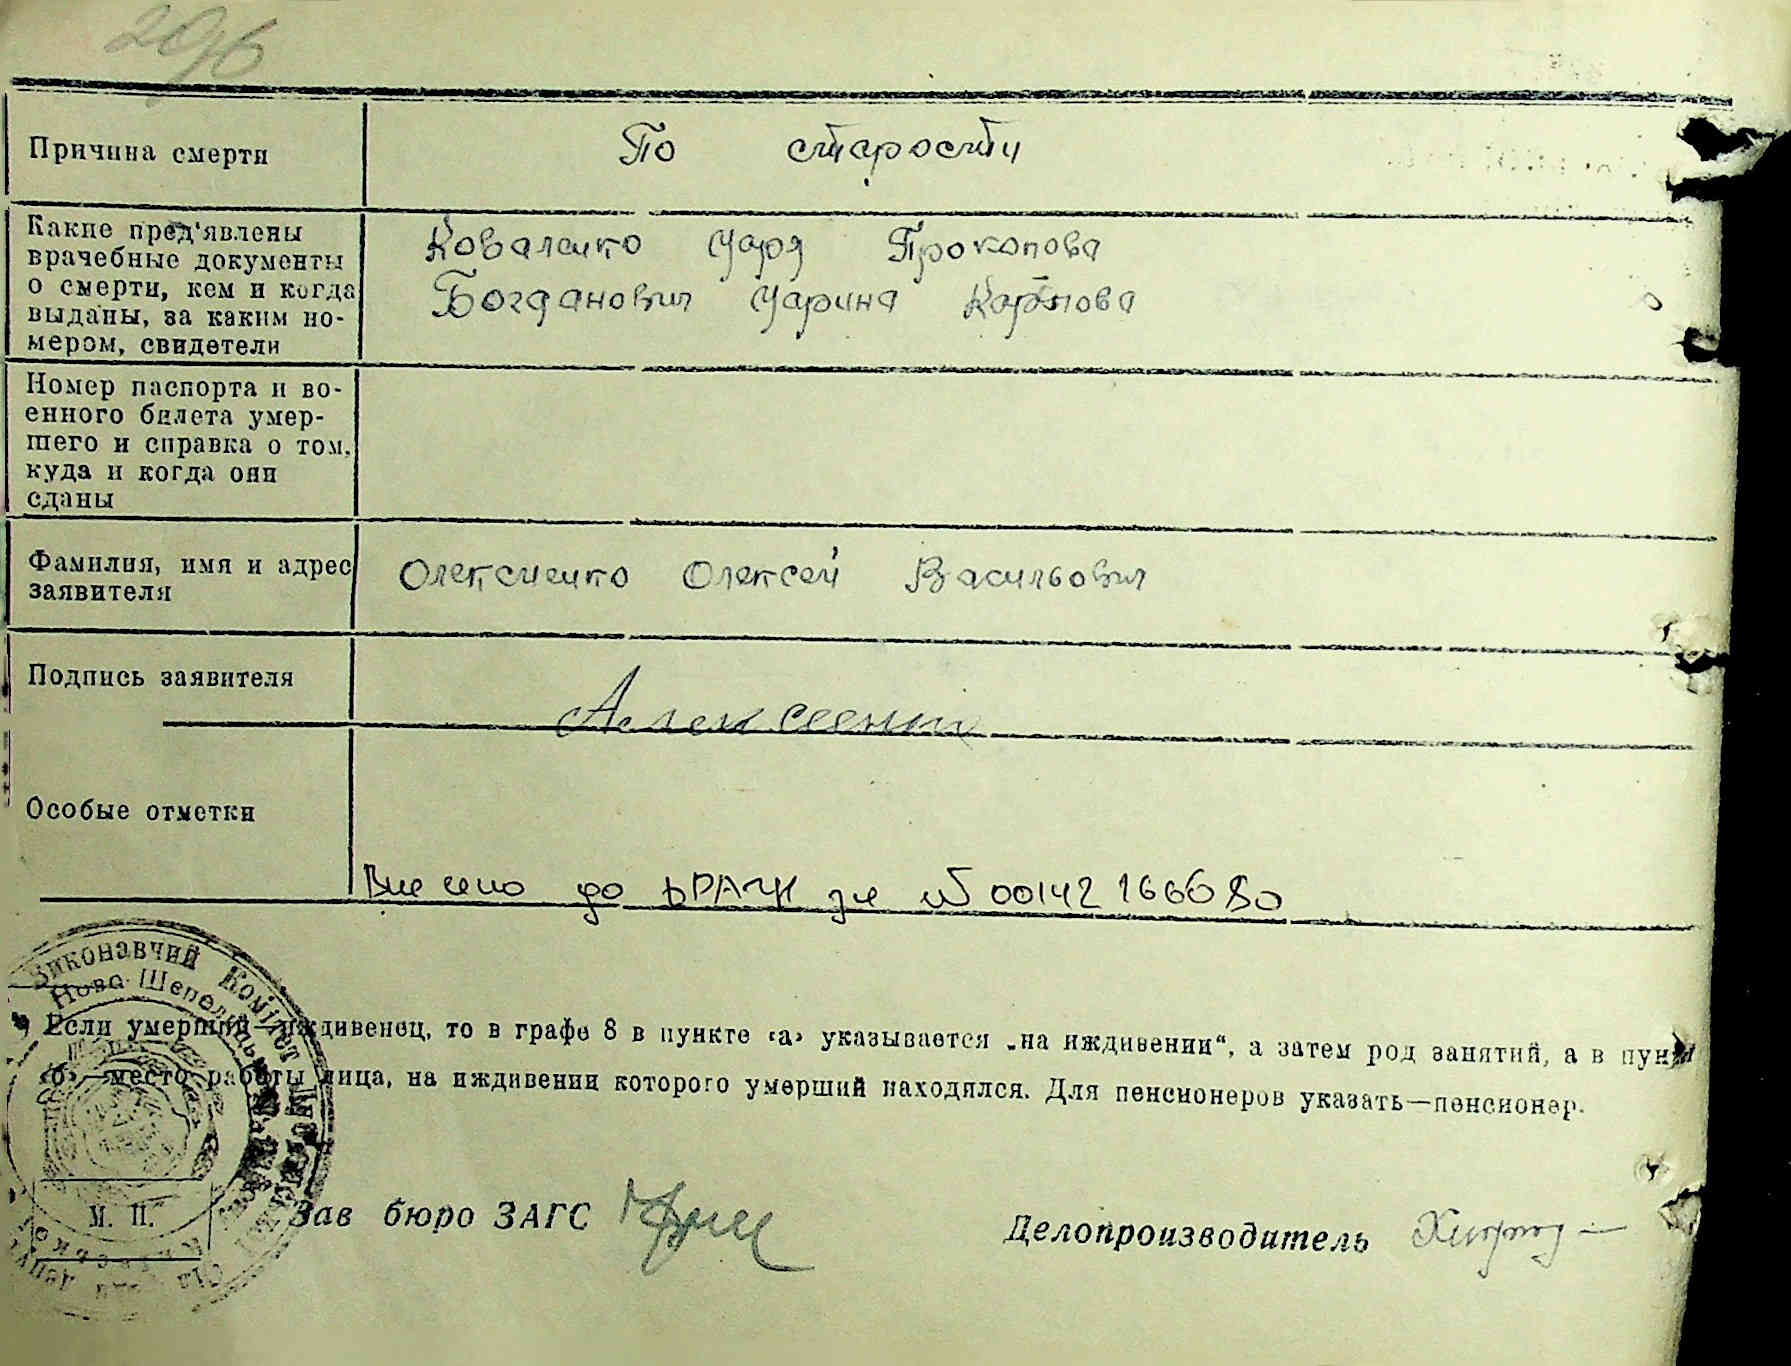 296
Причина смерти
По старости
Какие пред'явлены
врачебные документы
о смерти, кем и когда
выданы, за каким но-
мером, свидетели
Коваленко Уаря Прокопова
Богданович Уарина Карпова
Номер паспорта и во-
енного билета умер-
шего и справка о том,
куда и когда они
сданы
Фамилия, имя и адрес
заявителя
Олексиенко Олексей Васильович
Подпись заявителя
Алексеенко
Особые отметки
Внесено до ДРАЦС за № 00142166680
Виконавчий Комітет
Ново-Шепелицько
Если умерший—иждивенец, то в графе 8 в пункте «а» указывается „на иждивении“, а затем род занятий, а в пункте
«б»—место работы лица, на иждивении которого умерший находился. Для пенсионеров указать—пенсионер.
М. П.
Зав бюро ЗАГС
Делопроизводитель